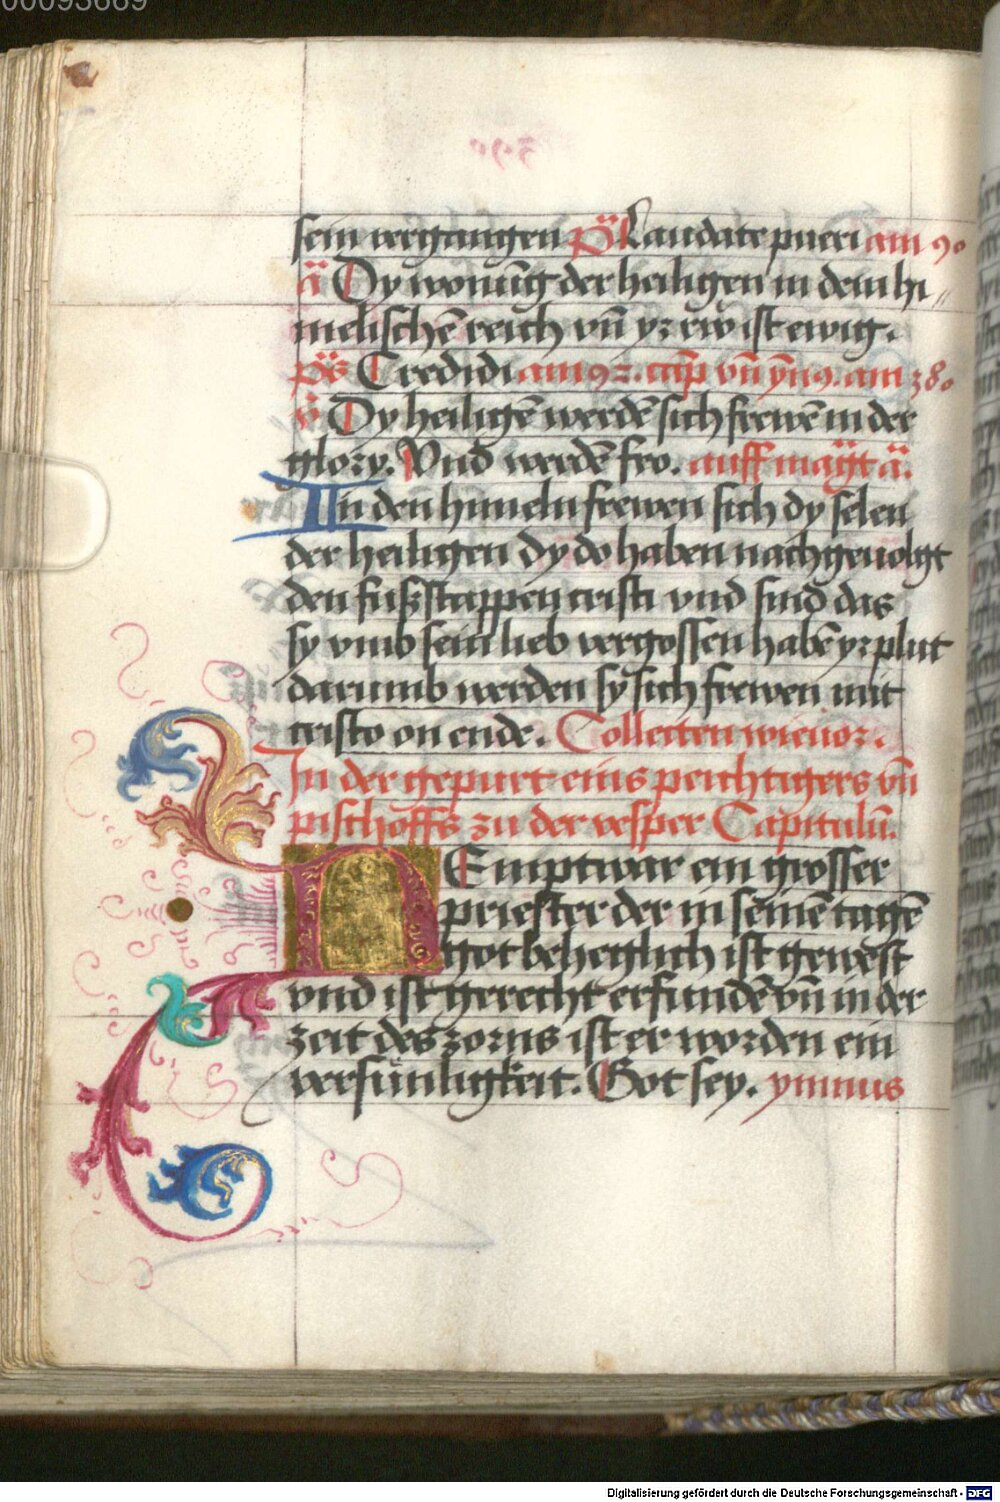 00093669
sein vergangen p̄s Laudate pueri am 90
ā Dy wonūg der heiligen in dem hi〃
melischē reich vn̄ yr rw ist ewig.
p̄s Credidi am 92. cap̄ vn̄ ym9. am 380
v̄ Dy heiligē werdē sich frewē in der
glory. Vnd werdē fro. auff mag̃t ā.
In den himeln frewen sich dy selen
der heiligen dy do haben nachgeuolgt
den fußstappen cristi vnd sind das
sy vmb sein lieb vergossen habē yr plut
darumb werden sy sich frewen mit
cristo on ende. Collecten wie uor.
In der gepurt eins peichtigers vn̄
pischoffs zu der vesper Capitulū.
NEmpt war ein grosser
priester der in seinē tagē
got beheglich ist gewest
vnd ist gerecht erfundē vn̄ in der
zeit des zorns ist er worden ein
versünligkeit. Got sey. ymnus
Digitalisierung gefördert durch die Deutsche Forschungsgemeinschaft - DFG